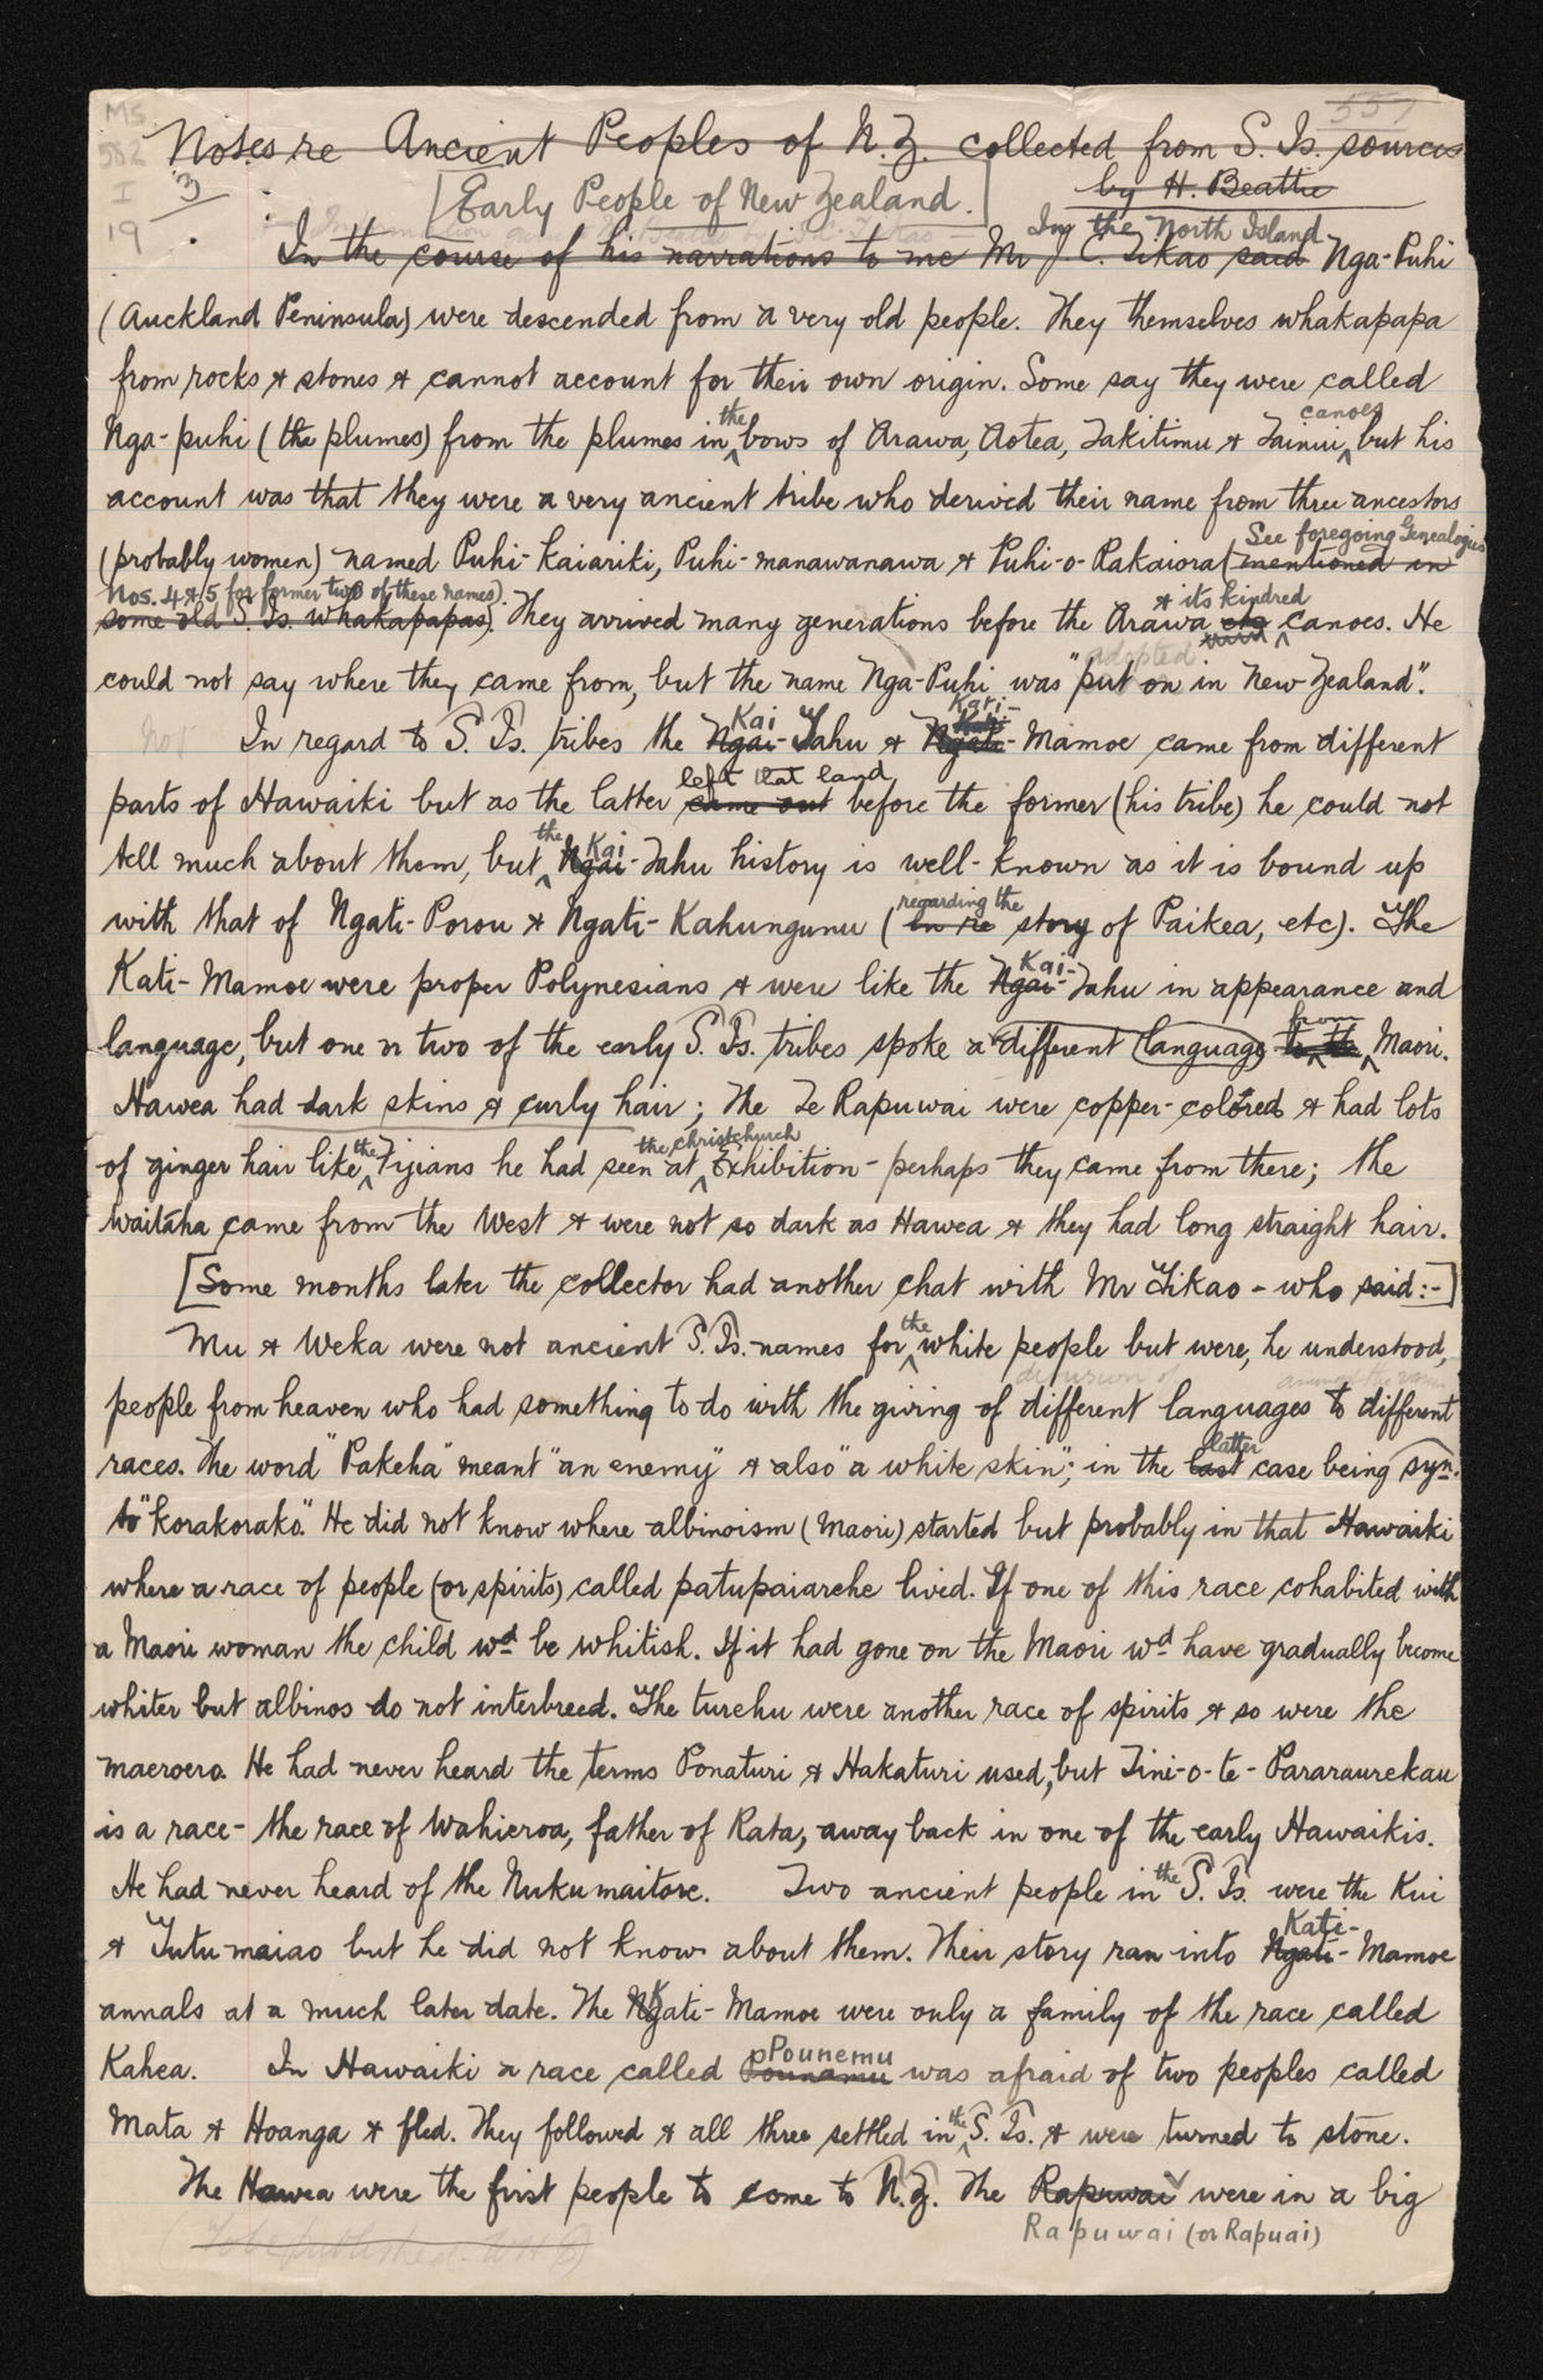 MS
582
I
19
3
557
Notes re Ancient Peoples of N.Z. collected from S. Is. sources
by H. Beattie
[Early People of New Zealand.]
In the North Island
In the course of his narrations to me Mr J. C. Tikao said Nga-Puhi
(Auckland Peninsula) were descended from a very old people. They themselves whakapapa
from rocks & stones & cannot account for their own origin. Some say they were called
the canoes
Nga-puhi (the plumes) from the plumes in bows of Arawa, Aotea, Takitimu & Tainui, but his
account was that they were a very ancient tribe who derived their name from three ancestors
See foregoing Genealogies
(probably women) named Puhi-kaiariki, Puhi-manawanawa & Puhi-o-Rakaiora (mentioned in
Nos. 4 & 5 for former two of these names).
& its kindred
some old S. Is. whakapapas). They arrived many generations before the Arawa etc canoes. He
adopted
could not say where they came from, but the name Nga-Puhi was "put on in New Zealand".
Not
Kai Kati-
In regard to S. Is. tribes the Ngai-Tahu & Ngati-Mamoe came from different
left that land
parts of Hawaiki but as the latter came out before the former (his tribe) he could not
the Kai
tell much about them, but Ngai-Tahu history is well-known as it is bound up
regarding the
with that of Ngati-Porou & Ngati-Kahungunu (in re story of Paikea, etc). The
Kai-
Kati-Mamoe were proper Polynesians & were like the Ngai-Tahu in appearance and
from
language, but one or two of the early S. Is. tribes spoke a different language to the Maori.
Hawea had dark skins & curly hair; The Te Rapuwai were copper-colored & had lots
the the Christchurch
of ginger hair like Fijians he had seen at Exhibition - perhaps they came from there; the
Waitaha came from the West & were not so dark as Hawea & they had long straight hair.
[Some months later the collector had another chat with Mr Tikao - who said:-]
the
Mu & Weka were not ancient S. Is. names for white people but were, he understood,
diffusion of among the
people from heaven who had something to do with the giving of different languages to different
latter
races. The word "Pakeha" meant "an enemy" & also "a white skin"; in the last case being syn.
to "korakorako." He did not know where albinoism (Maori) started but probably in that Hawaiki
where a race of people (or spirits) called patupaiarehe lived. If one of this race cohabited with
a Maori woman the child wd be whitish. If it had gone on the Maori wd have gradually become
whiter but albinos do not interbreed. The turehu were another race of spirits & so were the
maeroero. He had never heard the terms Ponaturi & Hakaturi used, but Tini-o-te-Pararaurekau
is a race - the race of Wahieroa, father of Rata, away back in one of the early Hawaikis.
the
He had never heard of the Nukumaitore. Two ancient people in S. Is. were the Kui
Kati-
& Tutumaiao but he did not know about them. Their story ran into Ngati-Mamoe
K
annals at a much later date. The Ngati-Mamoe were only a family of the race called
Pounemu
Kahea. In Hawaiki a race called Pounamu was afraid of two peoples called
the
Mata & Hoanga & fled. They followed & all three settled in S. Is. & were turned to stone.
The Hawea were the first people to come to N.Z. The Rapuwai were in a big
Rapuwai (or Rapuai)